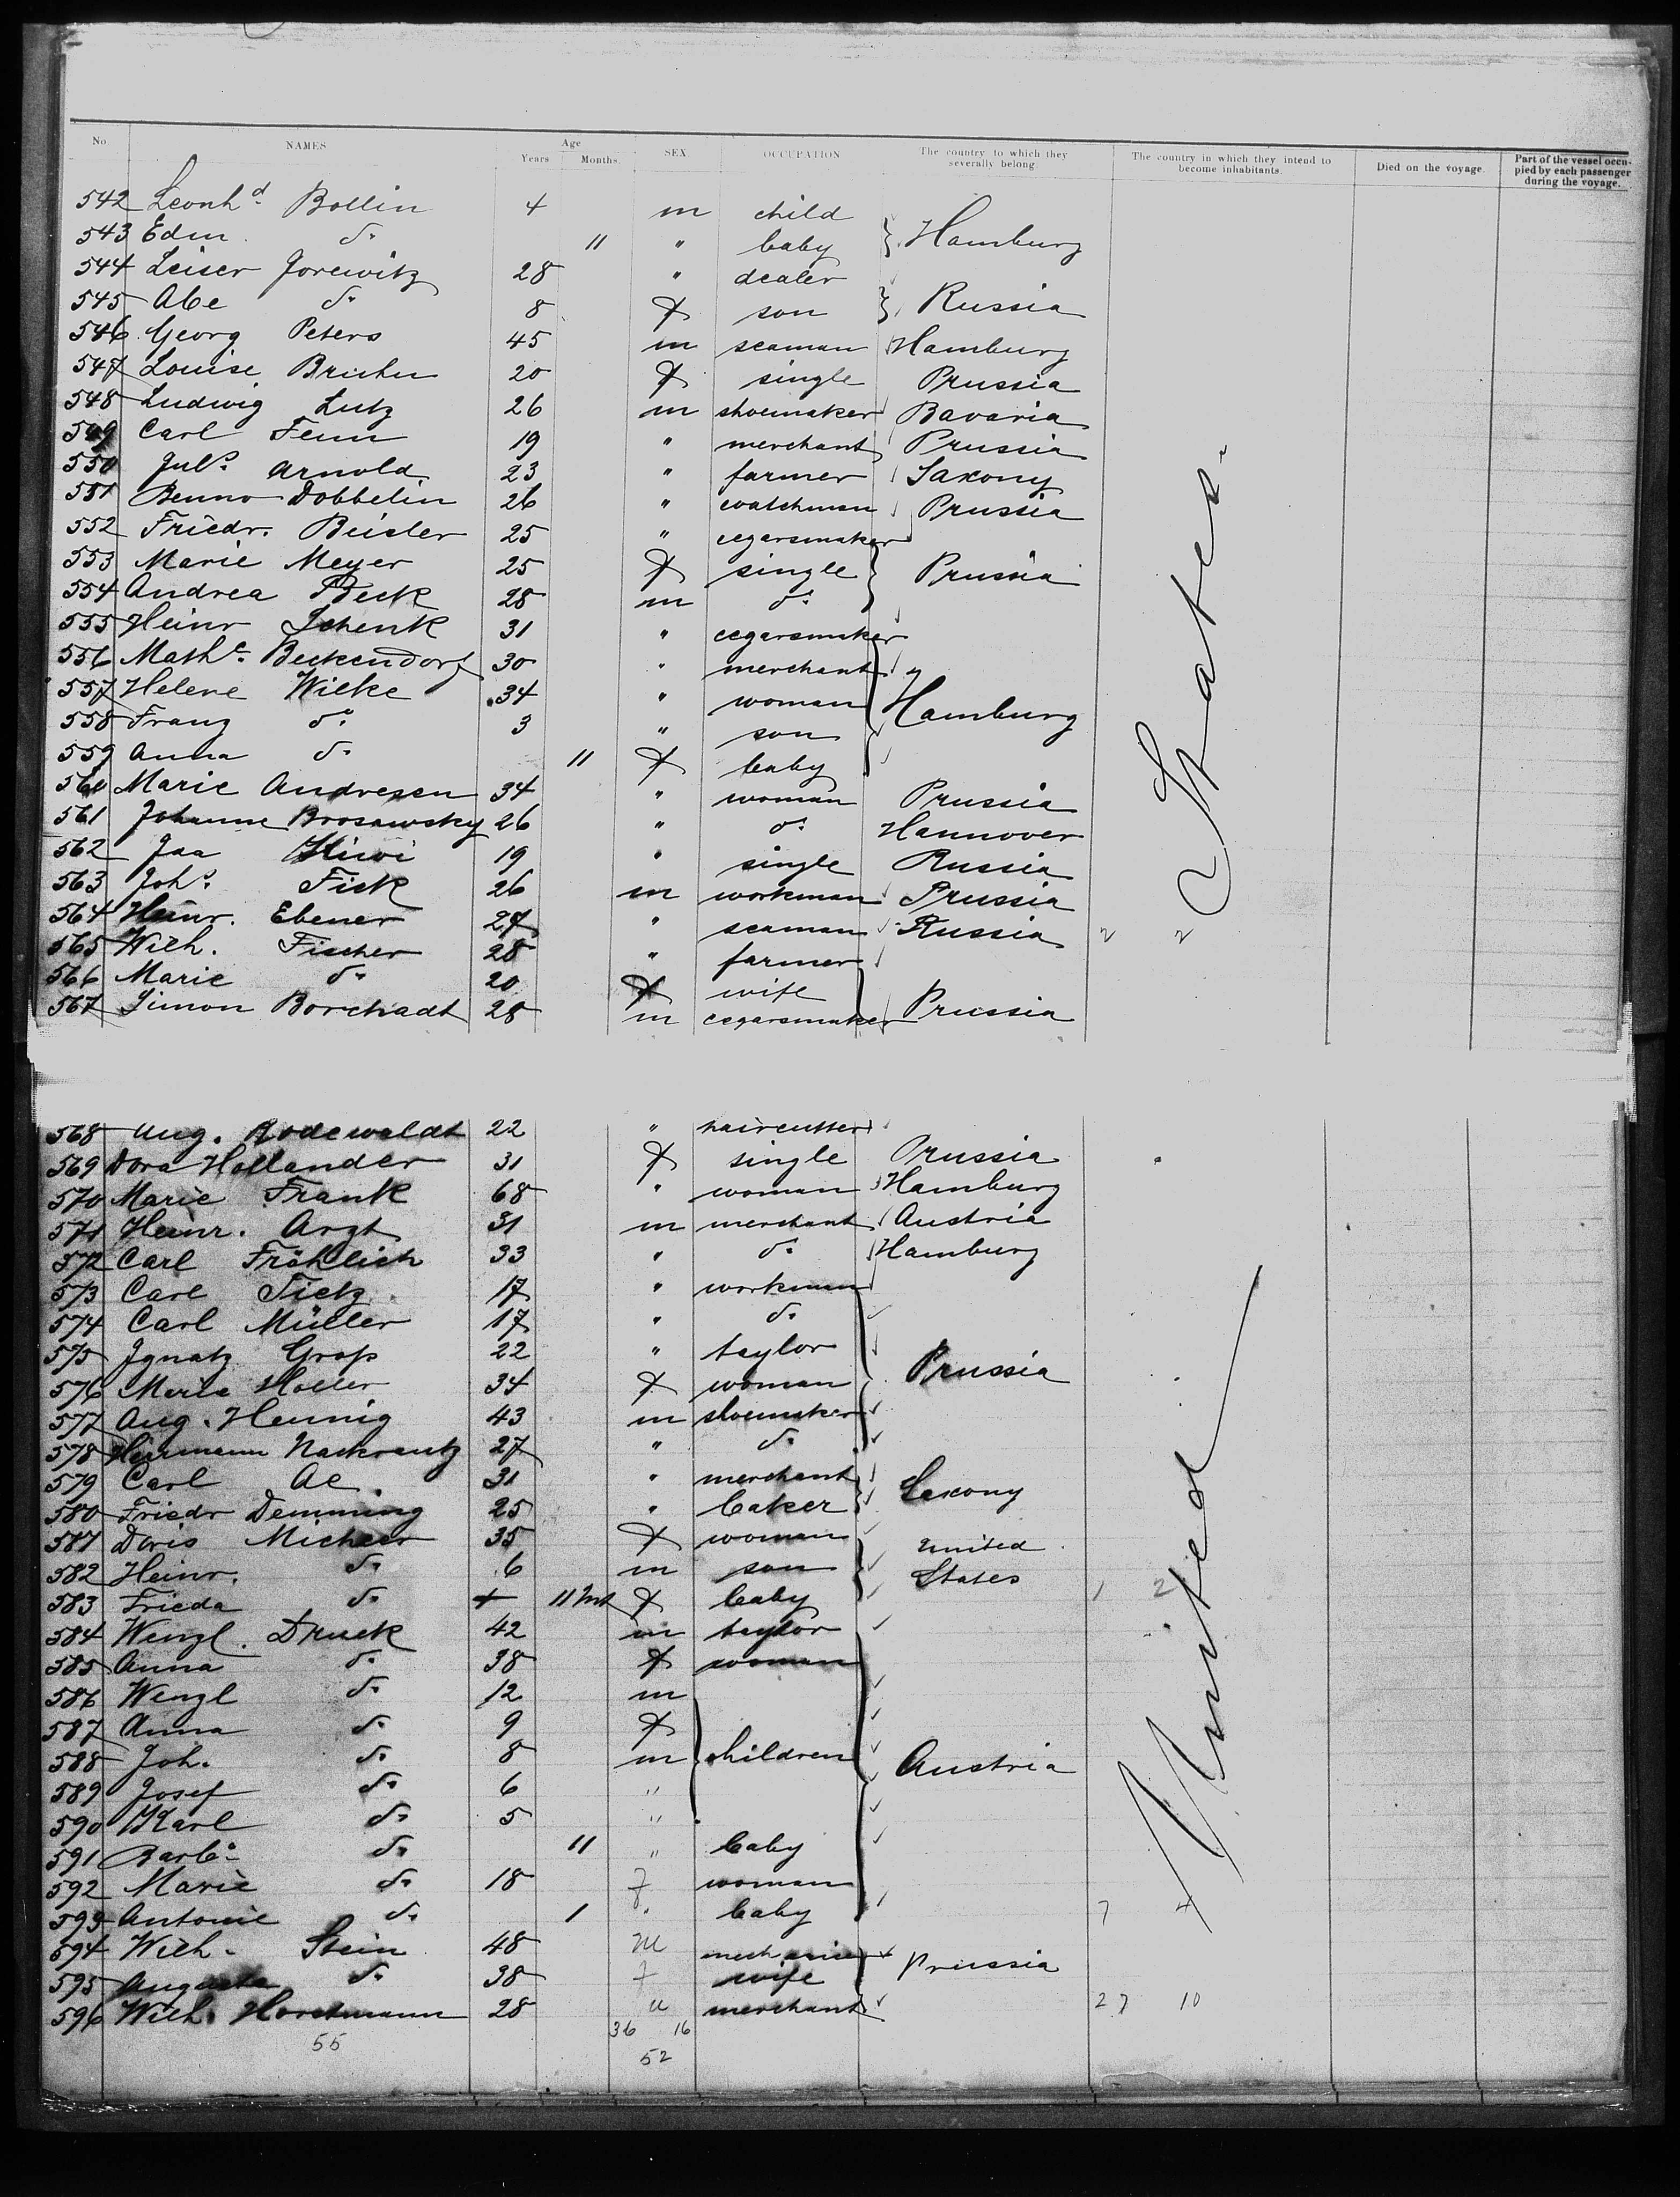 No. NAMES Age Years Months. SEX. OCCUPATION The country to which they severally belong. The country in which they intend to become inhabitants. Died on the voyage. Part of the vessel occupied by each passenger during the voyage.
542 Leonhd. Bollin 4 m child
543 Edm. do. 11 " baby } Hamburg
544 Leiser Jorewitz 28 " dealer
545 Abe do. 8 f son } Russia
546 Georg Peters 45 m seaman Hamburg
547 Louise Bruhn 20 f single Prussia
548 Ludwig Lutz 26 m shoemaker Bavaria
549 Carl Fenn 19 " merchant Prussia
550 Juls. Arnold 23 " farmer Saxony
551 Benno Dobbelin 26 " watchman Prussia
552 Friedr. Beisler 25 " cegarsmaker
553 Marie Meyer 25 f single } Prussia
554 Andrea Beck 28 m do.
555 Heinr Schenk 31 " cegarsmaker
556 Mathe. Beckendorf 30 " merchant
557 Helene Wilke 34 " woman } Hamburg
558 Franz do. 3 " son
559 Anna do. 11 f baby
560 Marie Andresen 34 " woman Prussia
561 Johanne Brosawsky 26 " do. Hannover
562 Jaa Hiwi 19 " single Russia
563 Johs. Fick 26 m workman Prussia
564 Heinr. Ebener 27 " seaman Russia 2 2
565 Wilh. Fischer 28 " farmer
566 Marie do. 20 f wife
567 Simon Borchadt 28 m cegarsmaker Prussia
568 Aug. Rodewaldt 22 " haircutter
569 Dora Hollander 31 f single Prussia
570 Marie Frank 68 " woman Hamburg
571 Heinr. Arzt 31 m merchant Austria
572 Carl Fröhlich 33 " do. Hamburg
573 Carl Tietz 17 " workman
574 Carl Müller 17 " do.
575 Ignatz Groß 22 " taylor
576 Marie Holler 34 f woman Prussia
577 Aug. Hennig 43 m shoemaker
578 Hermann Nackrantz 27 " do.
579 Carl Ae. 31 " merchant
580 Friedr Demming 25 " baker Saxony
581 Doris Micheer 35 f woman United
582 Heinr. do. 6 m son States
583 Frieda do. 11 Mt f baby 1 2
584 Wenzl. Druck 42 m taylor
585 Anna do. 38 f woman
586 Wenzl do. 12 m
587 Anna do. 9 f
588 Joh. do. 8 m children Austria
589 Josef do. 6 "
590 Karl do. 5 "
591 Barba. do. 11 " baby
592 Marie do. 18 f woman
593 Antonie do. 1 " baby 7 4
594 Wilh. Stein 48 m mechanic Prussia
595 Auguste do. 38 f wife
596 Wilh. Horstmann 28 m merchant 27 10
55 36 16
52
United States.